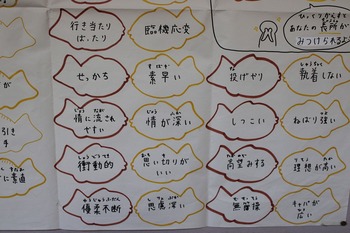 行き当たり
ばったり
臨機応変
せっかち
素早い
情に流され
やすい
情が深い
衝動的
思いきりが
いい
優柔不断
思慮深い
あなたの長所が
みつけられるよ
投げやり
執着しない
しつこい
ねばり強い
高望みする
理想が高い
無節操
キャパが
広い